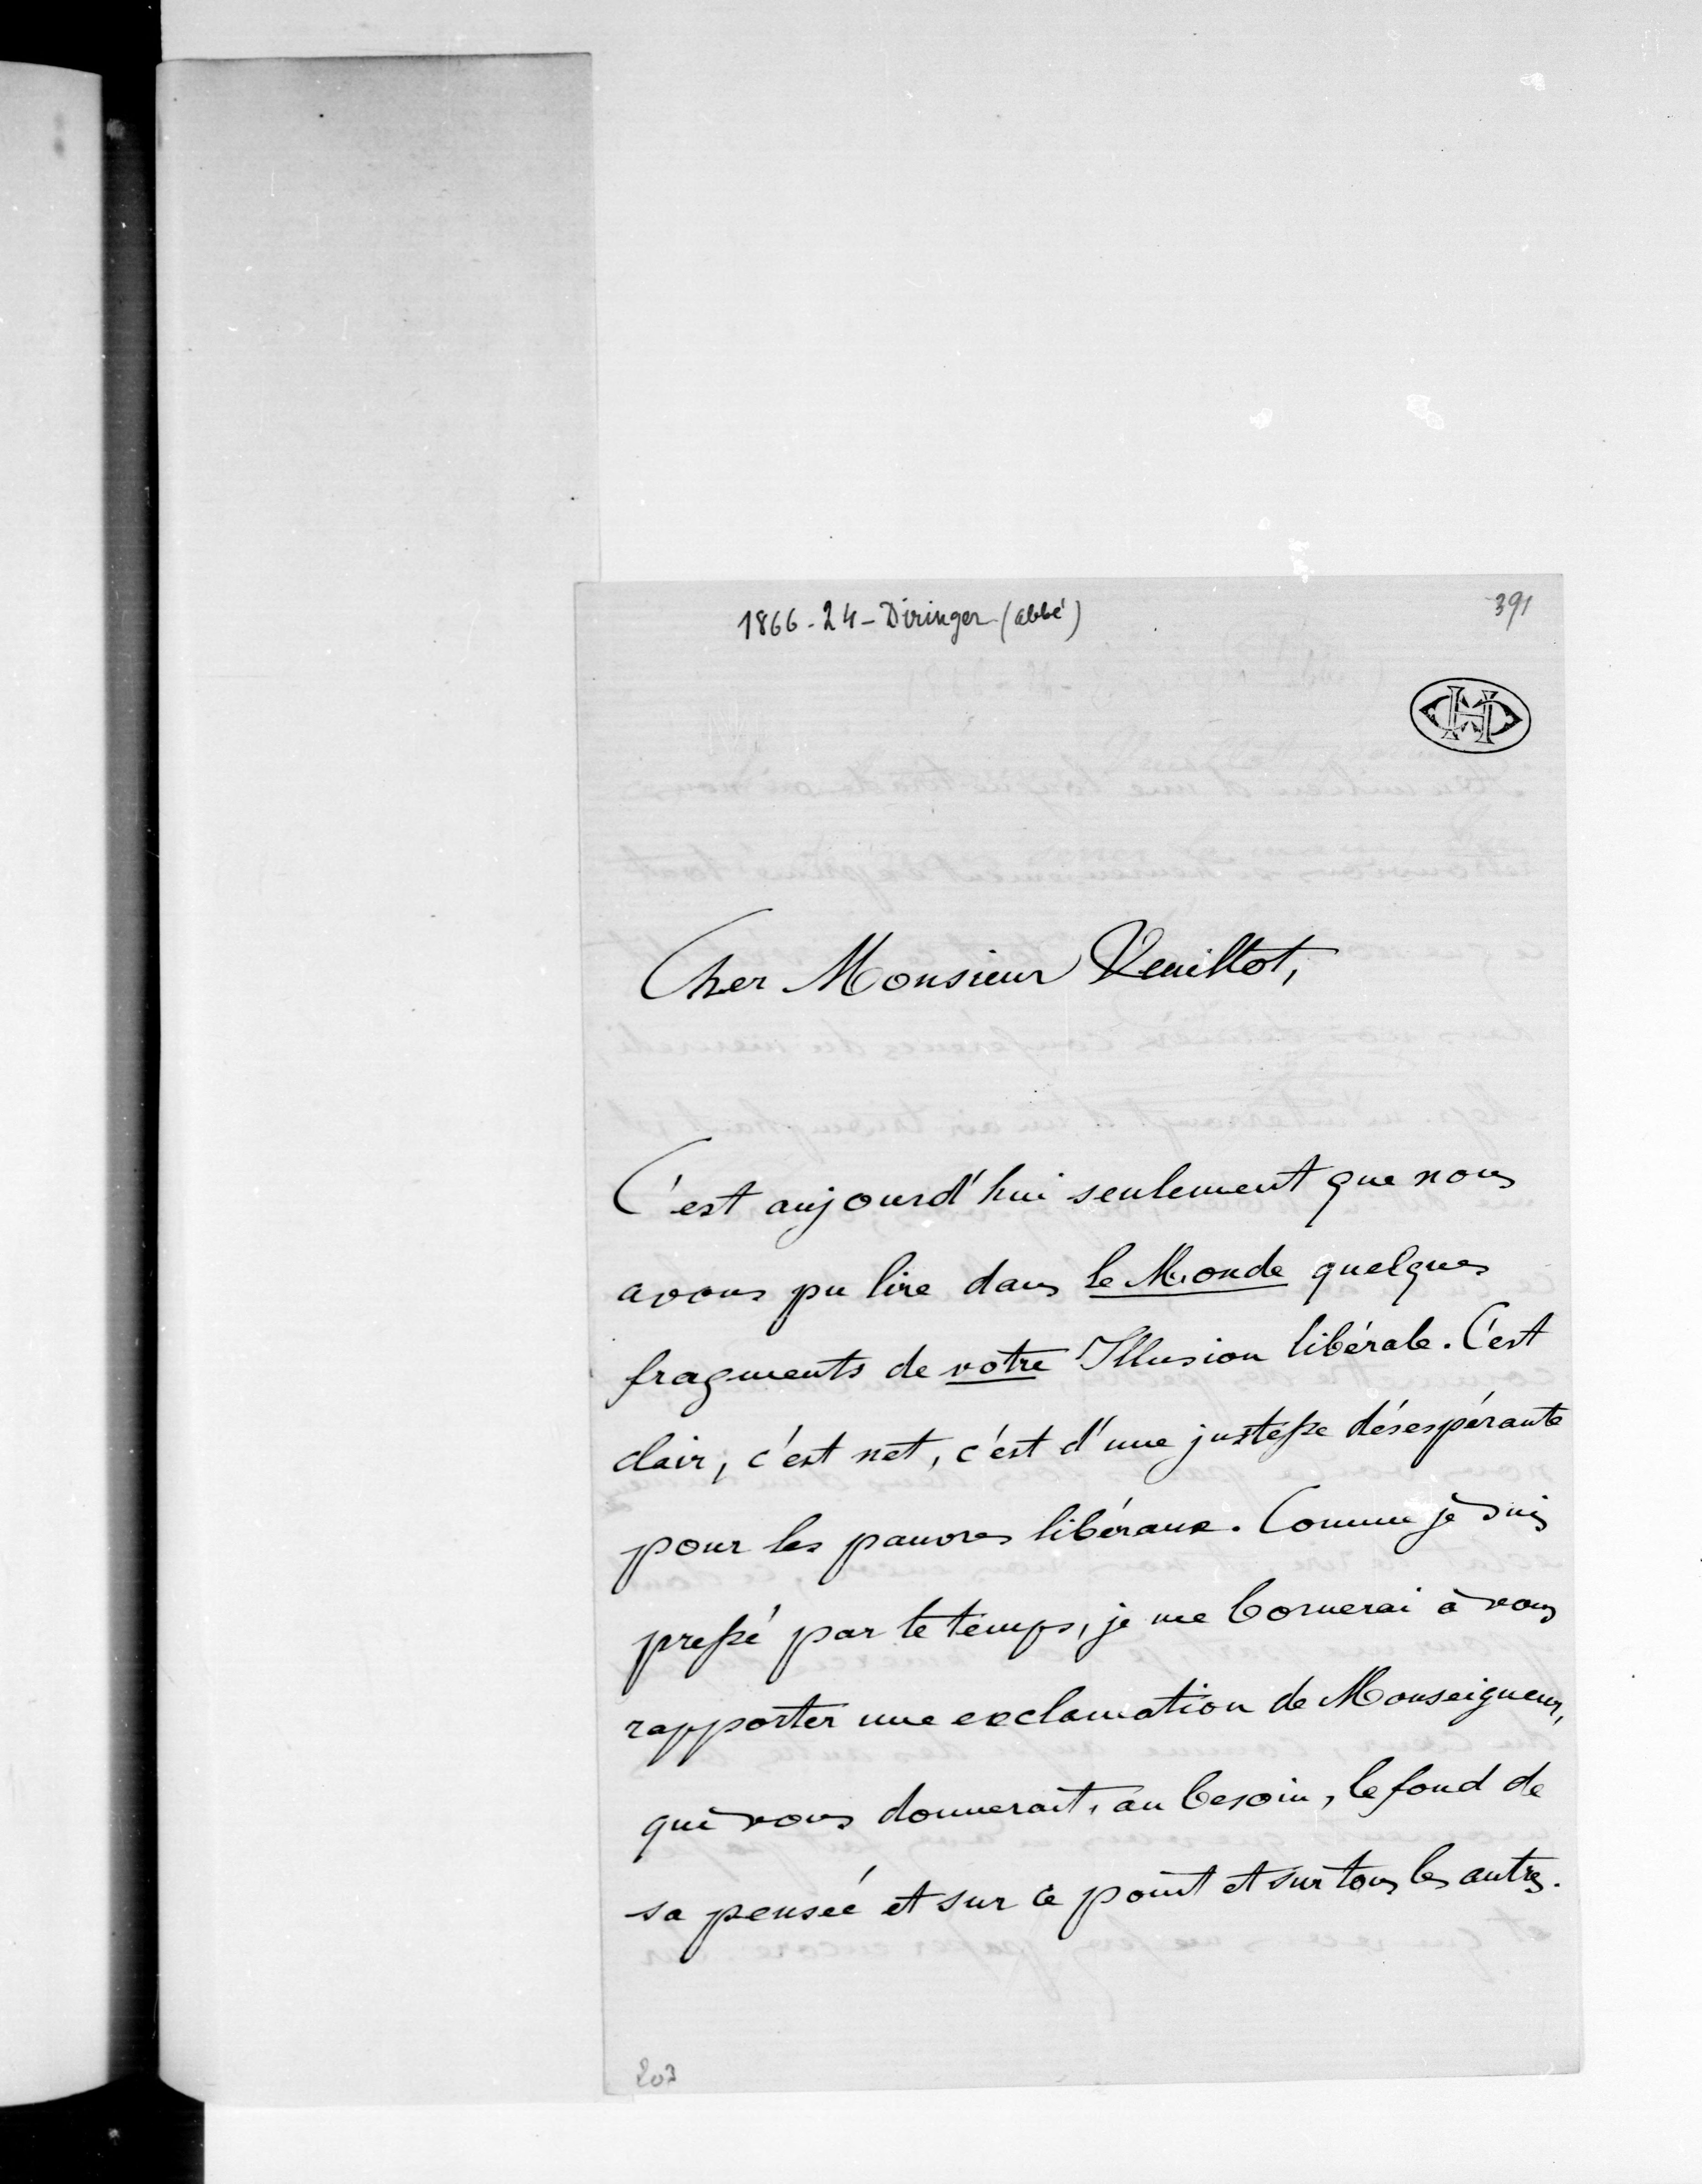 1866-24-Diringer (abbé)
391
Cher Monsieur Veuillot,
C'est aujourd'hui seulement que nous
avons pu lire dans le Monde quelques
fragments de votre Illusion libérale. C'est
clair, c'est net, c'est d'une justesse désespérante
pour les pauvres libéraux. Comme je suis
pressé par le temps, je me bornerai à vous
rapporter une exclamation de Monseigneur,
qui vous donnerait, au besoin, le fond de
sa pensée et sur ce point et sur tous les autres.